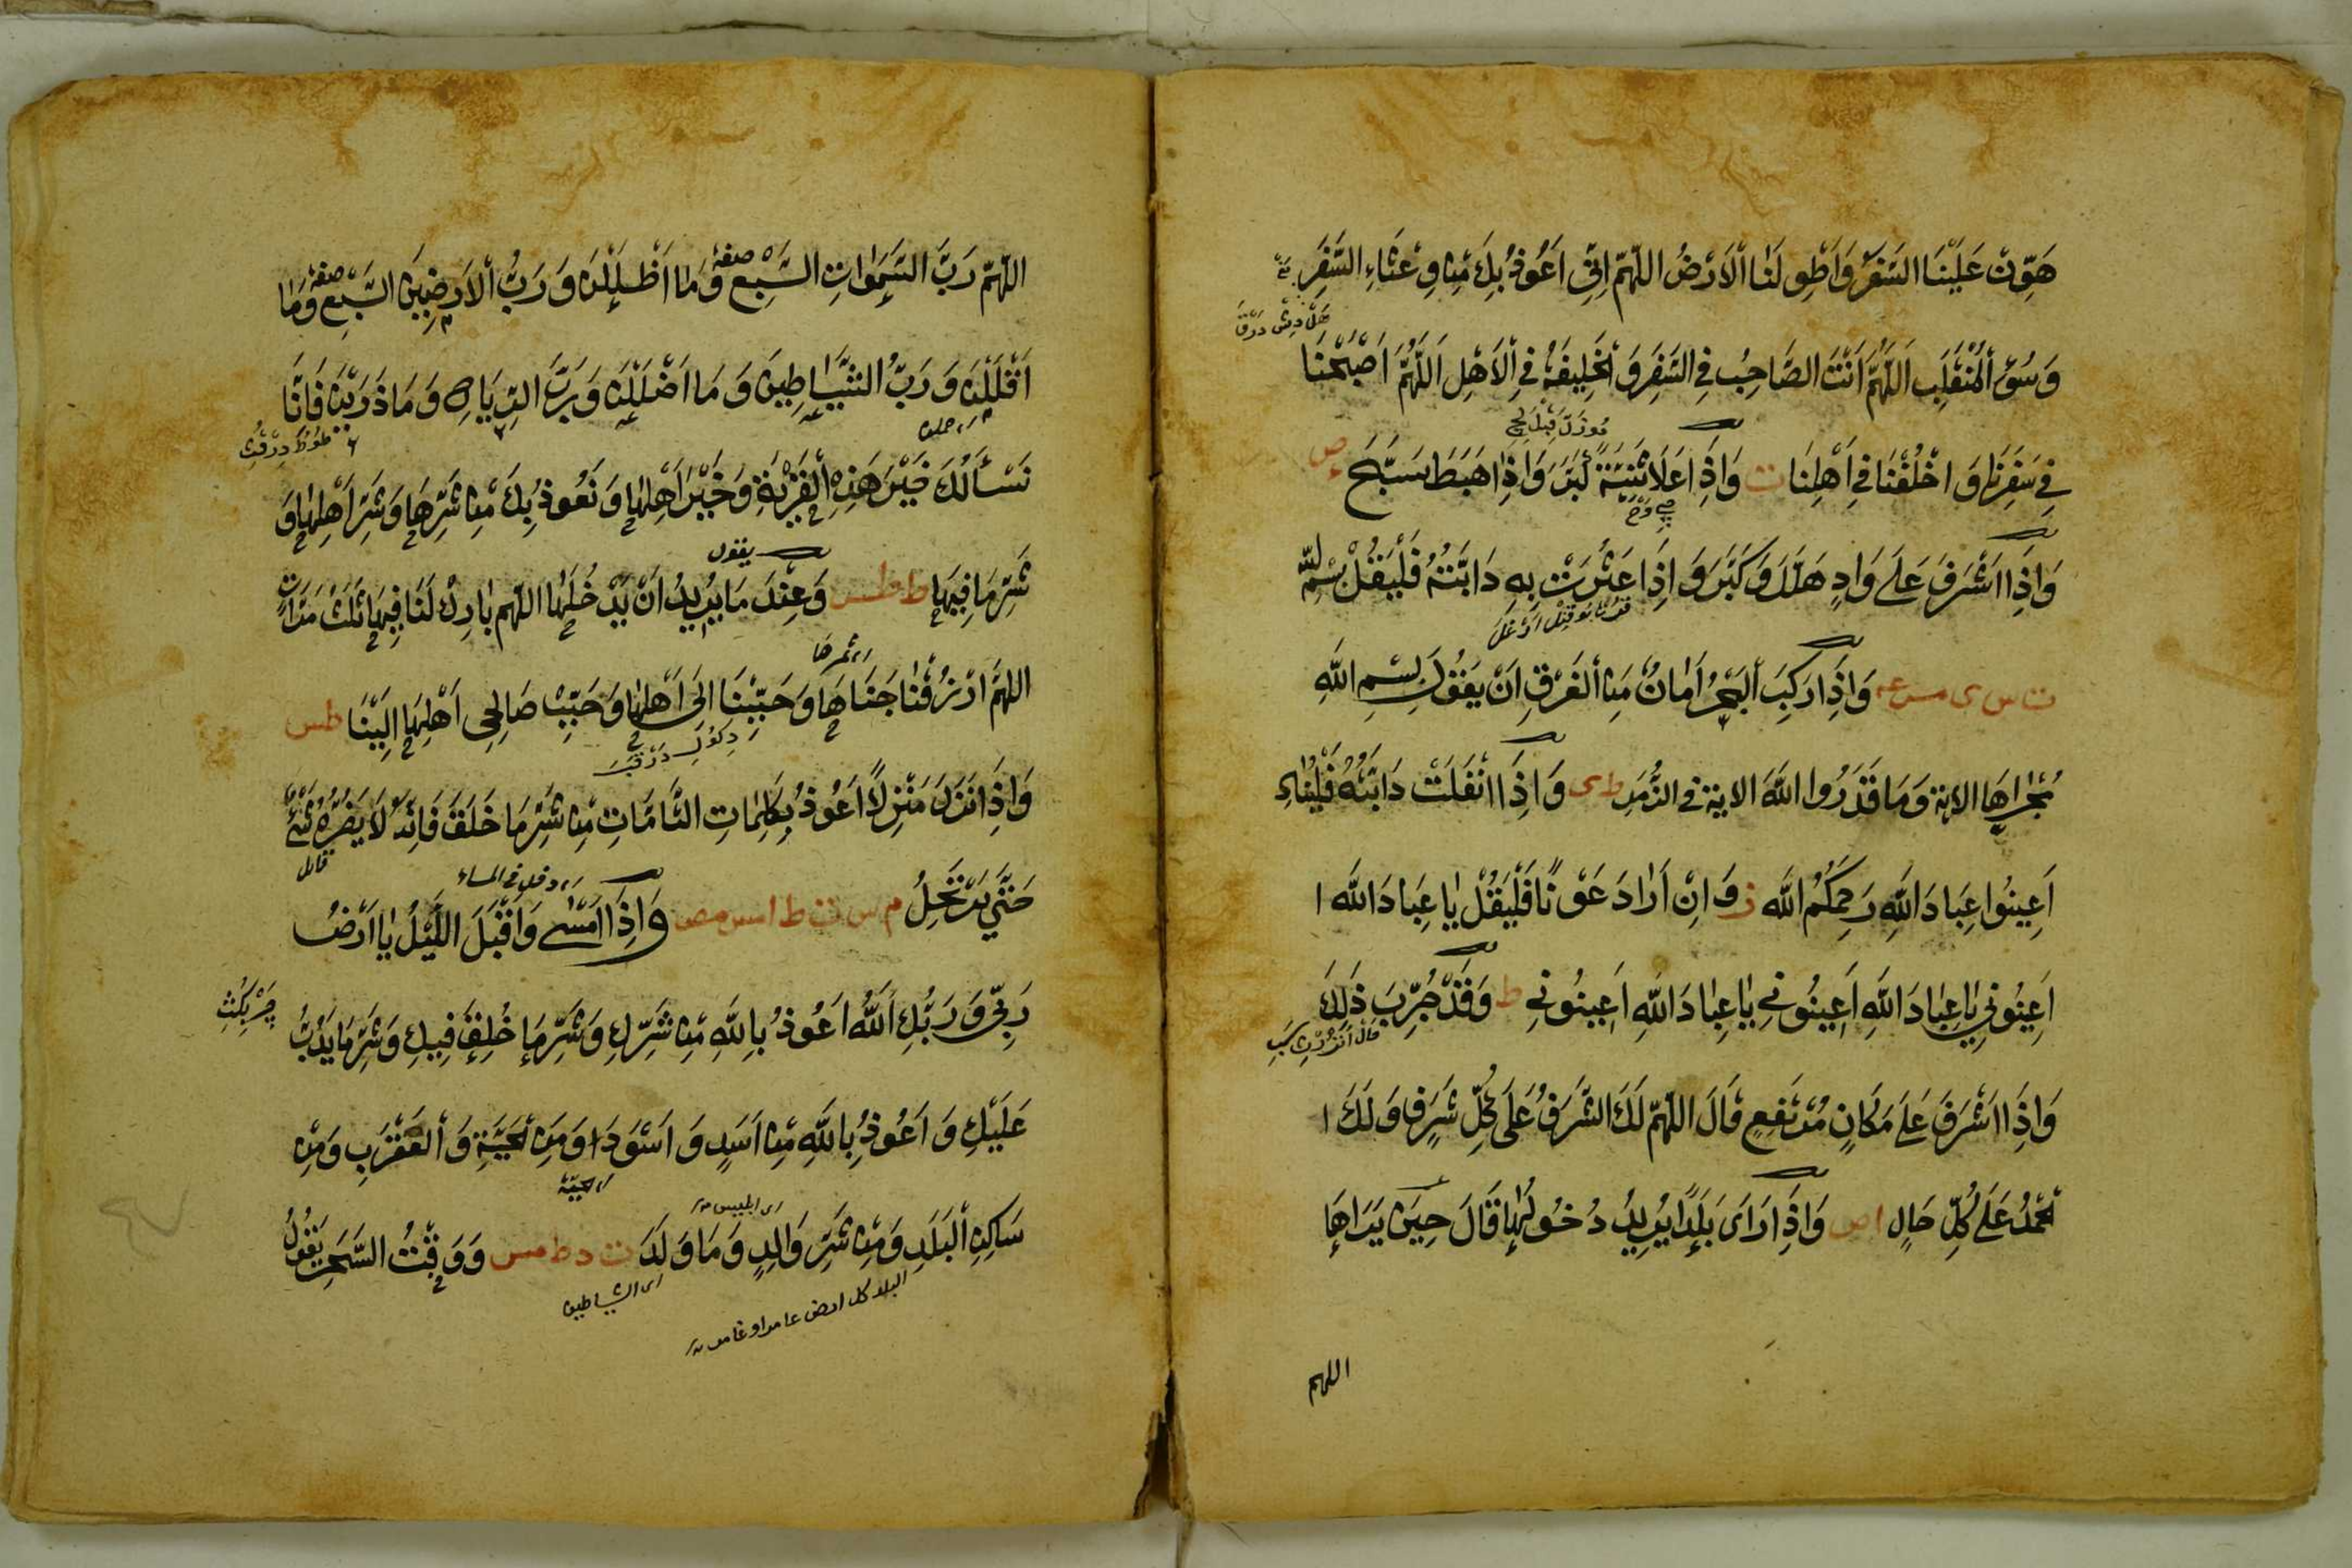 هَوِّنْ عَلَيْنَا السَّفَرَ وَاطْوِ لَنَا الْاَرْضَ اللّٰهُمَّ اِنِّي اَعُوذُ بِكَ مِنْ وَعْثَاءِ السَّفَرِ
وَسُوءِ الْمُنْقَلَبِ اَللّٰهُمَّ اَنْتَ الصَّاحِبُ فِي السَّفَرِ وَالْخَلِيفَةُ فِي الْاَهْلِ اَللّٰهُمَّ اَصْبَحْنَا
فِي سَفَرِنَا وَاخْلُفْنَا فِي اَهْلِنَا ت وَاِذَا عَلَا ثَنِيَّةً كَبَّرَ وَاِذَا هَبَطَ سَبَّحَ
وَاِذَا اَشْرَفَ عَلَى وَادٍ هَلَّلَ وَكَبَّرَ وَاِذَا عَثَرَتْ بِهِ دَابَّتُهُ فَلْيَقُلْ بِسْمِ اللّٰهِ
وَاِذَا رَكِبَ الْبَحْرَ اَمَانٌ مِنَ الْغَرَقِ اَنْ يَقُولَ بِسْمِ اللّٰهِ
مُجْرٰىهَا الاية وَمَا قَدَرُوا اللّٰهَ الاية فِي الزُّمَرِ ط ى وَاِذَا انْفَلَتَتْ دَابَّتُهُ فَلْيُنَادِ
اَعِينُوا عِبَادَ اللّٰهِ رَحِمَكُمُ اللّٰه ز وَاِنْ اَرَادَ عَوْنًا فَلْيَقُلْ يَا عِبَادَ اللّٰه ا
اَعِينُونِي يَا عِبَادَ اللّٰهِ اَعِينُونِي يَا عِبَادَ اللّٰهِ اَعِينُونِي ط وَقَدْ جُرِّبَ ذٰلِكَ
وَاِذَا اَشْرَفَ عَلَى مَكَانٍ مُرْتَفِعٍ قَالَ اللّٰهُمَّ لَكَ الشَّرَفُ عَلَى كُلِّ شَرَفٍ وَلَكَ ا
لْحَمْدُ عَلَى كُلِّ حَالٍ ا ص وَاِذَا رَاَى بَلَدًا يُرِيدُ دُخُولَهَا قَالَ حِينَ يَرَاهَا
اللهم
اللّٰهُمَّ رَبَّ السَّمٰوَاتِ السَّبْعِ وَمَا اَظْلَلْنَ وَرَبَّ الْاَرَضِينَ السَّبْعِ وَمَا
اَقْلَلْنَ وَرَبَّ الشَّيَاطِينِ وَمَا اَضْلَلْنَ وَرَبَّ الرِّيَاحِ وَمَا ذَرَيْنَ فَاِنَّا
نَسْاَلُكَ خَيْرَ هَذِهِ الْقَرْيَةِ وَخَيْرَ اَهْلِهَا وَنَعُوذُ بِكَ مِنْ شَرِّهَا وَشَرِّ اَهْلِهَا وَ
شَرِّ مَا فِيهَا وَعِنْدَ مَا يُرِيدُ اَنْ يَدْخُلَهَا يقول اللّٰهُمَّ بَارِكْ لَنَا فِيهَا ثَلٰثَ مَرَّاتٍ
اللّٰهُمَّ ارْزُقْنَا جَنَاهَا وَحَبِّبْنَا اِلَى اَهْلِهَا وَحَبِّبْ صَالِحِي اَهْلِهَا اِلَيْنَا طس
وَاِذَا نَزَلَ مَنْزِلًا اَعُوذُ بِكَلِمَاتِ اللّٰهِ التَّامَّاتِ مِنْ شَرِّ مَا خَلَقَ فَاِنَّهُ لَا يَضُرُّهُ شَيْءٌ
حَتَّى يَرْتَحِلَ م س ت ط ا مص وَاِذَا اَمْسٰى وَاَقْبَلَ اللَّيْلُ يَا اَرْضُ
ای دخل فی المساء
رَبِّي وَرَبُّكِ اللّٰهُ اَعُوذُ بِاللّٰهِ مِنْ شَرِّكِ وَشَرِّ مَا خُلِقَ فِيكِ وَشَرِّ مَا يَدِبُّ
عَلَيْكِ وَاَعُوذُ بِاللّٰهِ مِنْ اَسَدٍ وَاَسْوَدَ وَمِنَ الْحَيَّةِ وَالْعَقْرَبِ وَمِنْ
سَاكِنِ الْبَلَدِ وَمِنْ شَرِّ وَالِدٍ وَمَا وَلَدَ ت د ط مس وَوَقْتَ السَّحَرِ يَقُولُ
ای الشیاطین
البلد كل ارض عامرا و غامر